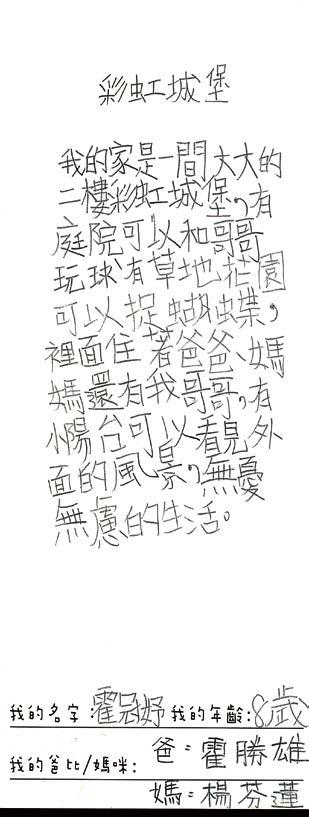 彩虹城堡
我的家是一間大大的
二樓彩虹城堡,有
庭院可以和哥哥
玩球、有草地花園
可以捉蝴蝶,
裡面住著爸爸、媽
媽還有我哥哥,有
小陽台可以看見外
面的風景,無憂
無慮的生活。
我的名字:霍冠妤 我的年齡:8歲
我的爸比/媽咪: 爸:霍勝雄
媽:楊芬蓮